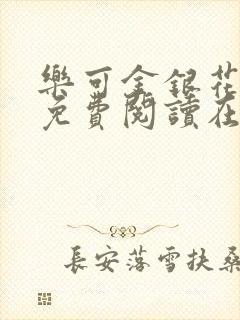 樂可金銀花
免費閱讀在
長安落雪扶桑